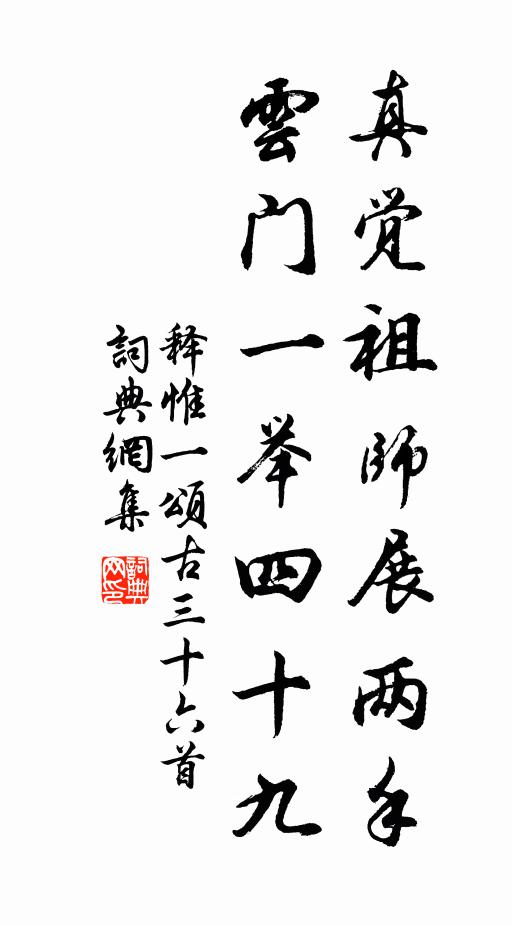 真觉祖师展两手
雲门一举四十九
释惟一頌古三十六首
詞典網集
詞典网印